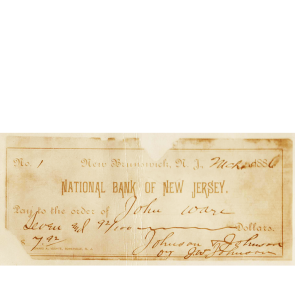 No. 1 New Brunswick, N. J. 1886
NATIONAL BANK OF NEW JERSEY.
Pay to the order of John Ware
Seven & 92/100 Dollars.
$ 7.92 Johnson & Johnson
by J.W. Johnson